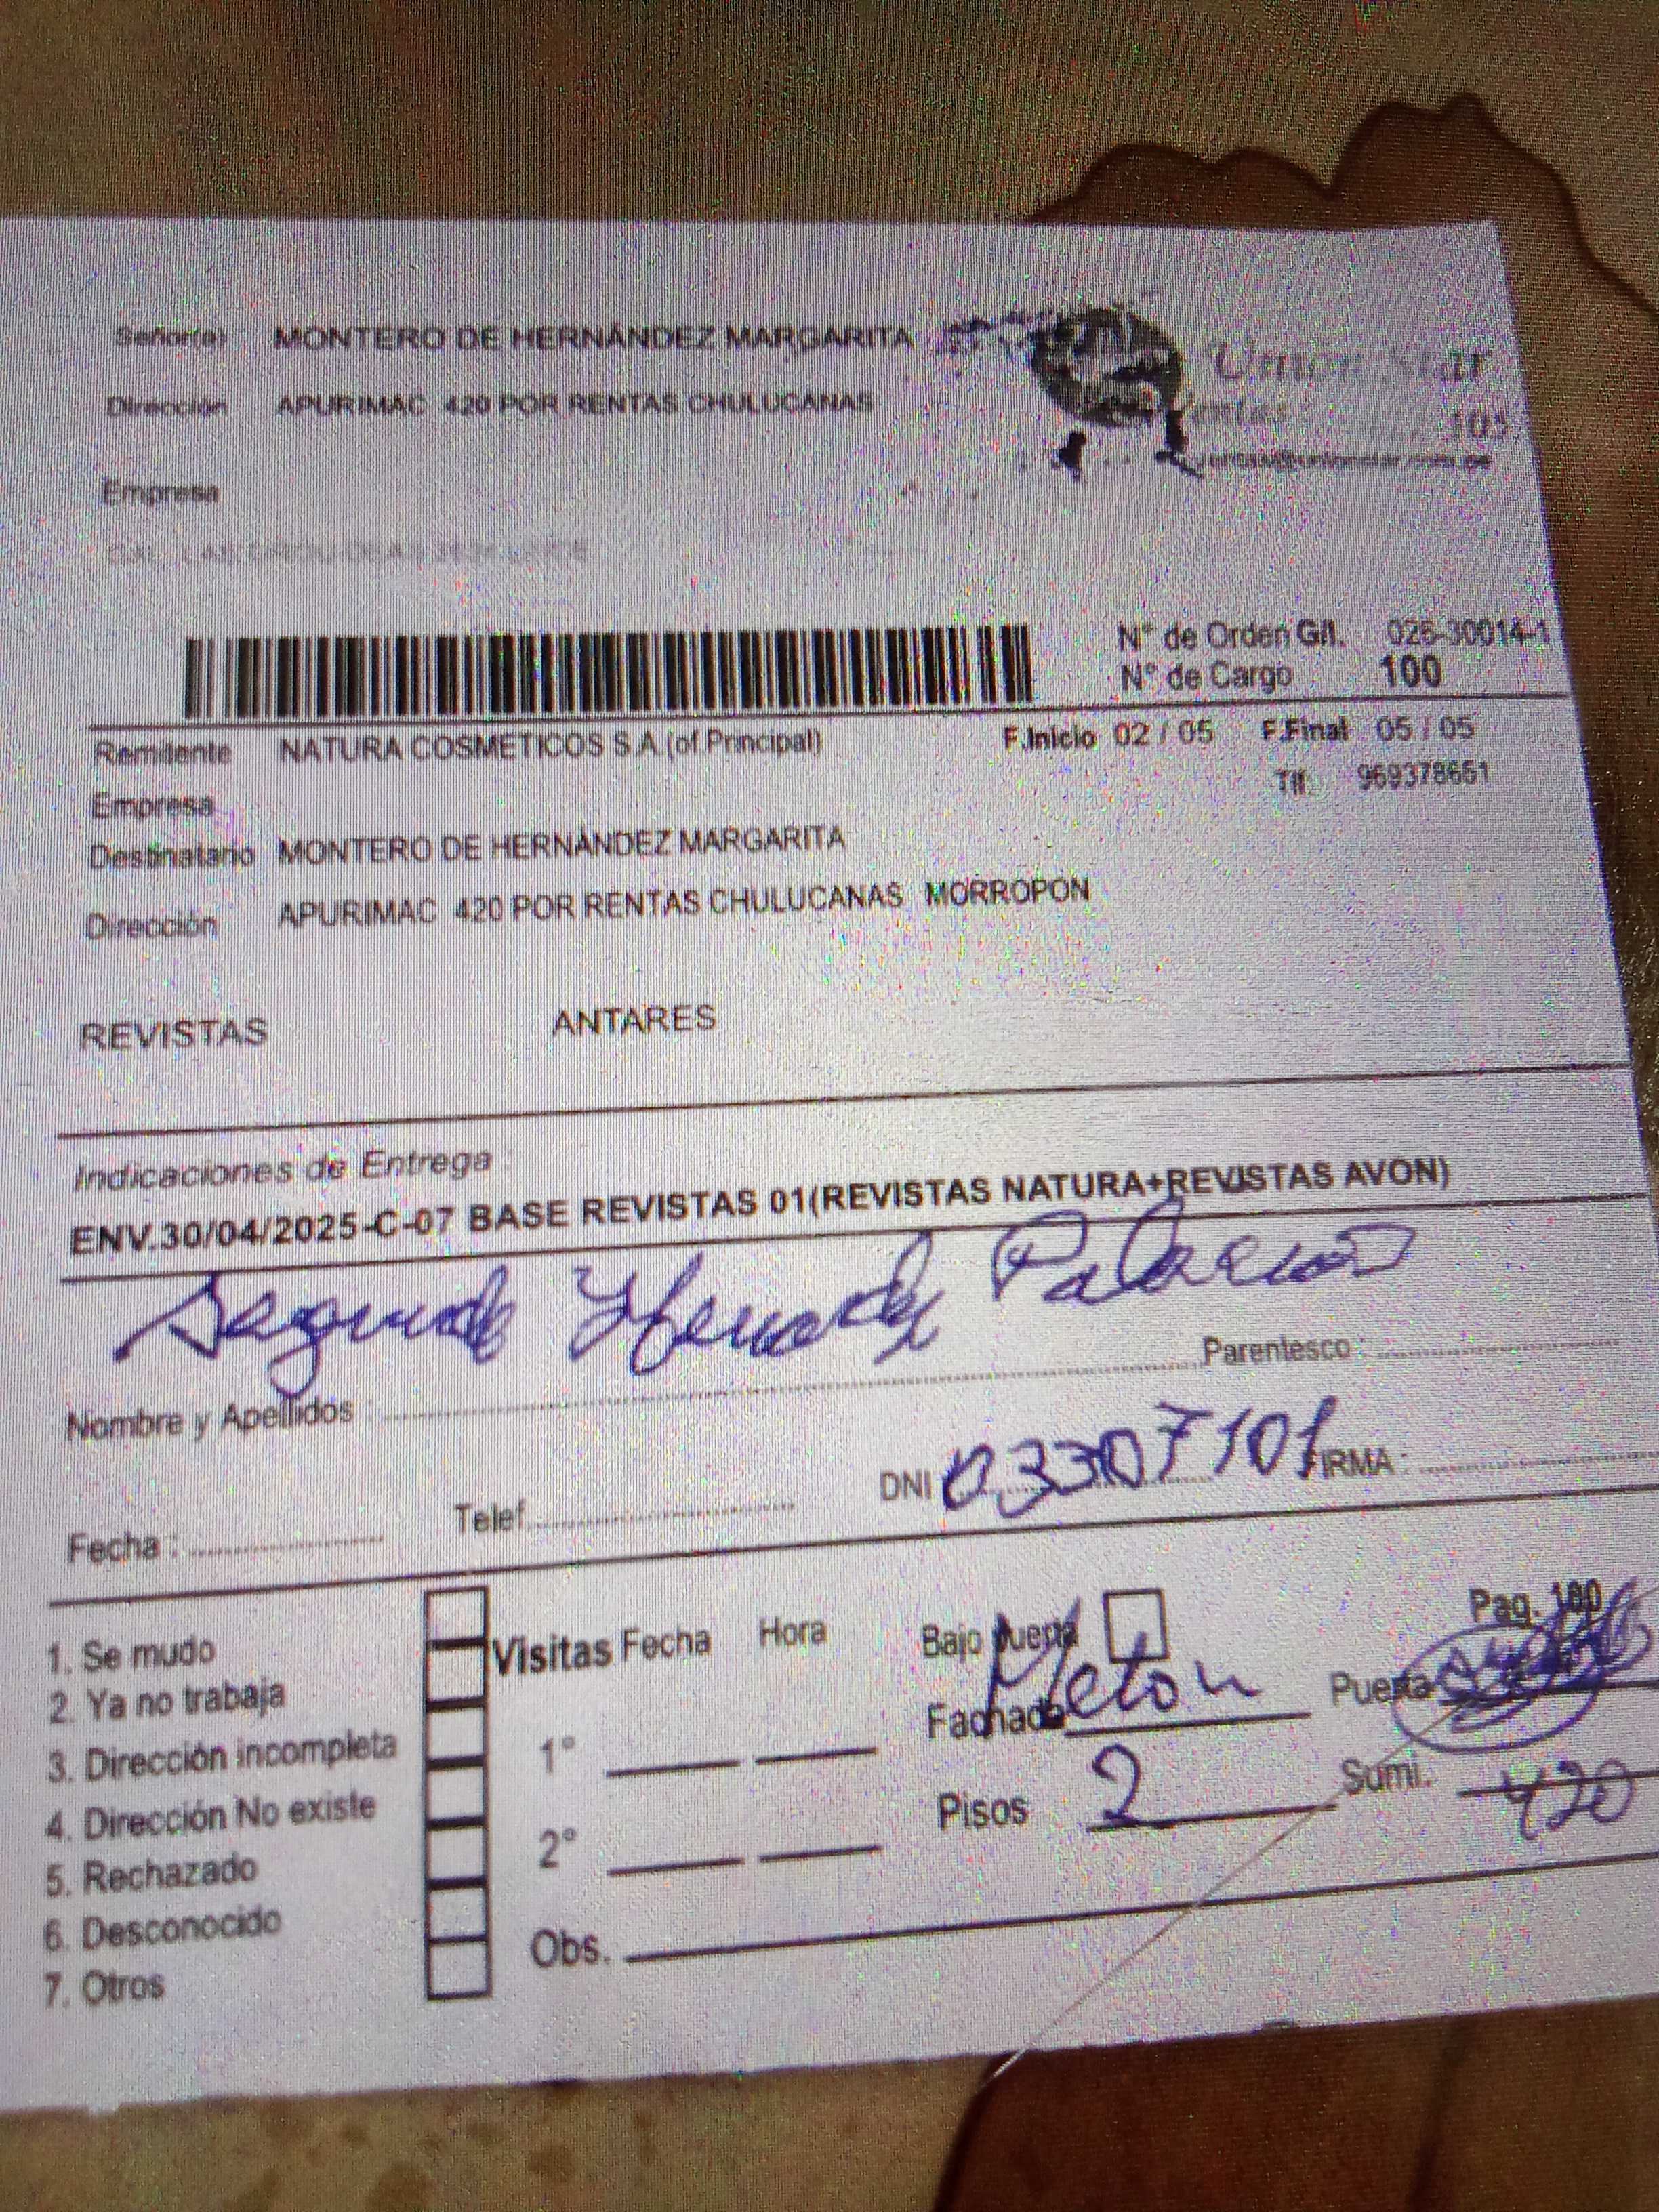 Señor(a) MONTERO DE HERNÁNDEZ MARGARITA
Unión Star
Dirección APURIMAC 420 POR RENTAS CHULUCANAS
105
Empresa
N° de Orden G/I. 026-30014-1
N° de Cargo 100
Remitente NATURA COSMETICOS S.A.(of.Principal) F.Inicio 02 / 05 F.Final 05 / 05
Empresa Tlf. 969378651
Destinatario MONTERO DE HERNÁNDEZ MARGARITA
Dirección APURIMAC 420 POR RENTAS CHULUCANAS MORROPON
REVISTAS ANTARES
Indicaciones de Entrega
ENV.30/04/2025-C-07 BASE REVISTAS 01(REVISTAS NATURA+REVISTAS AVON)
Segundo Palacios
Nombre y Apellidos Parentesco :
Fecha : Telef. DNI 03307101 FIRMA :
1. Se mudo
2. Ya no trabaja
3. Dirección incompleta
4. Dirección No existe
5. Rechazado
6. Desconocido
7. Otros
Visitas Fecha Hora
1°
2°
Obs.
Bajo puerta Pag. 100
Fachada Puerta
Pisos 2 Sumi. 420